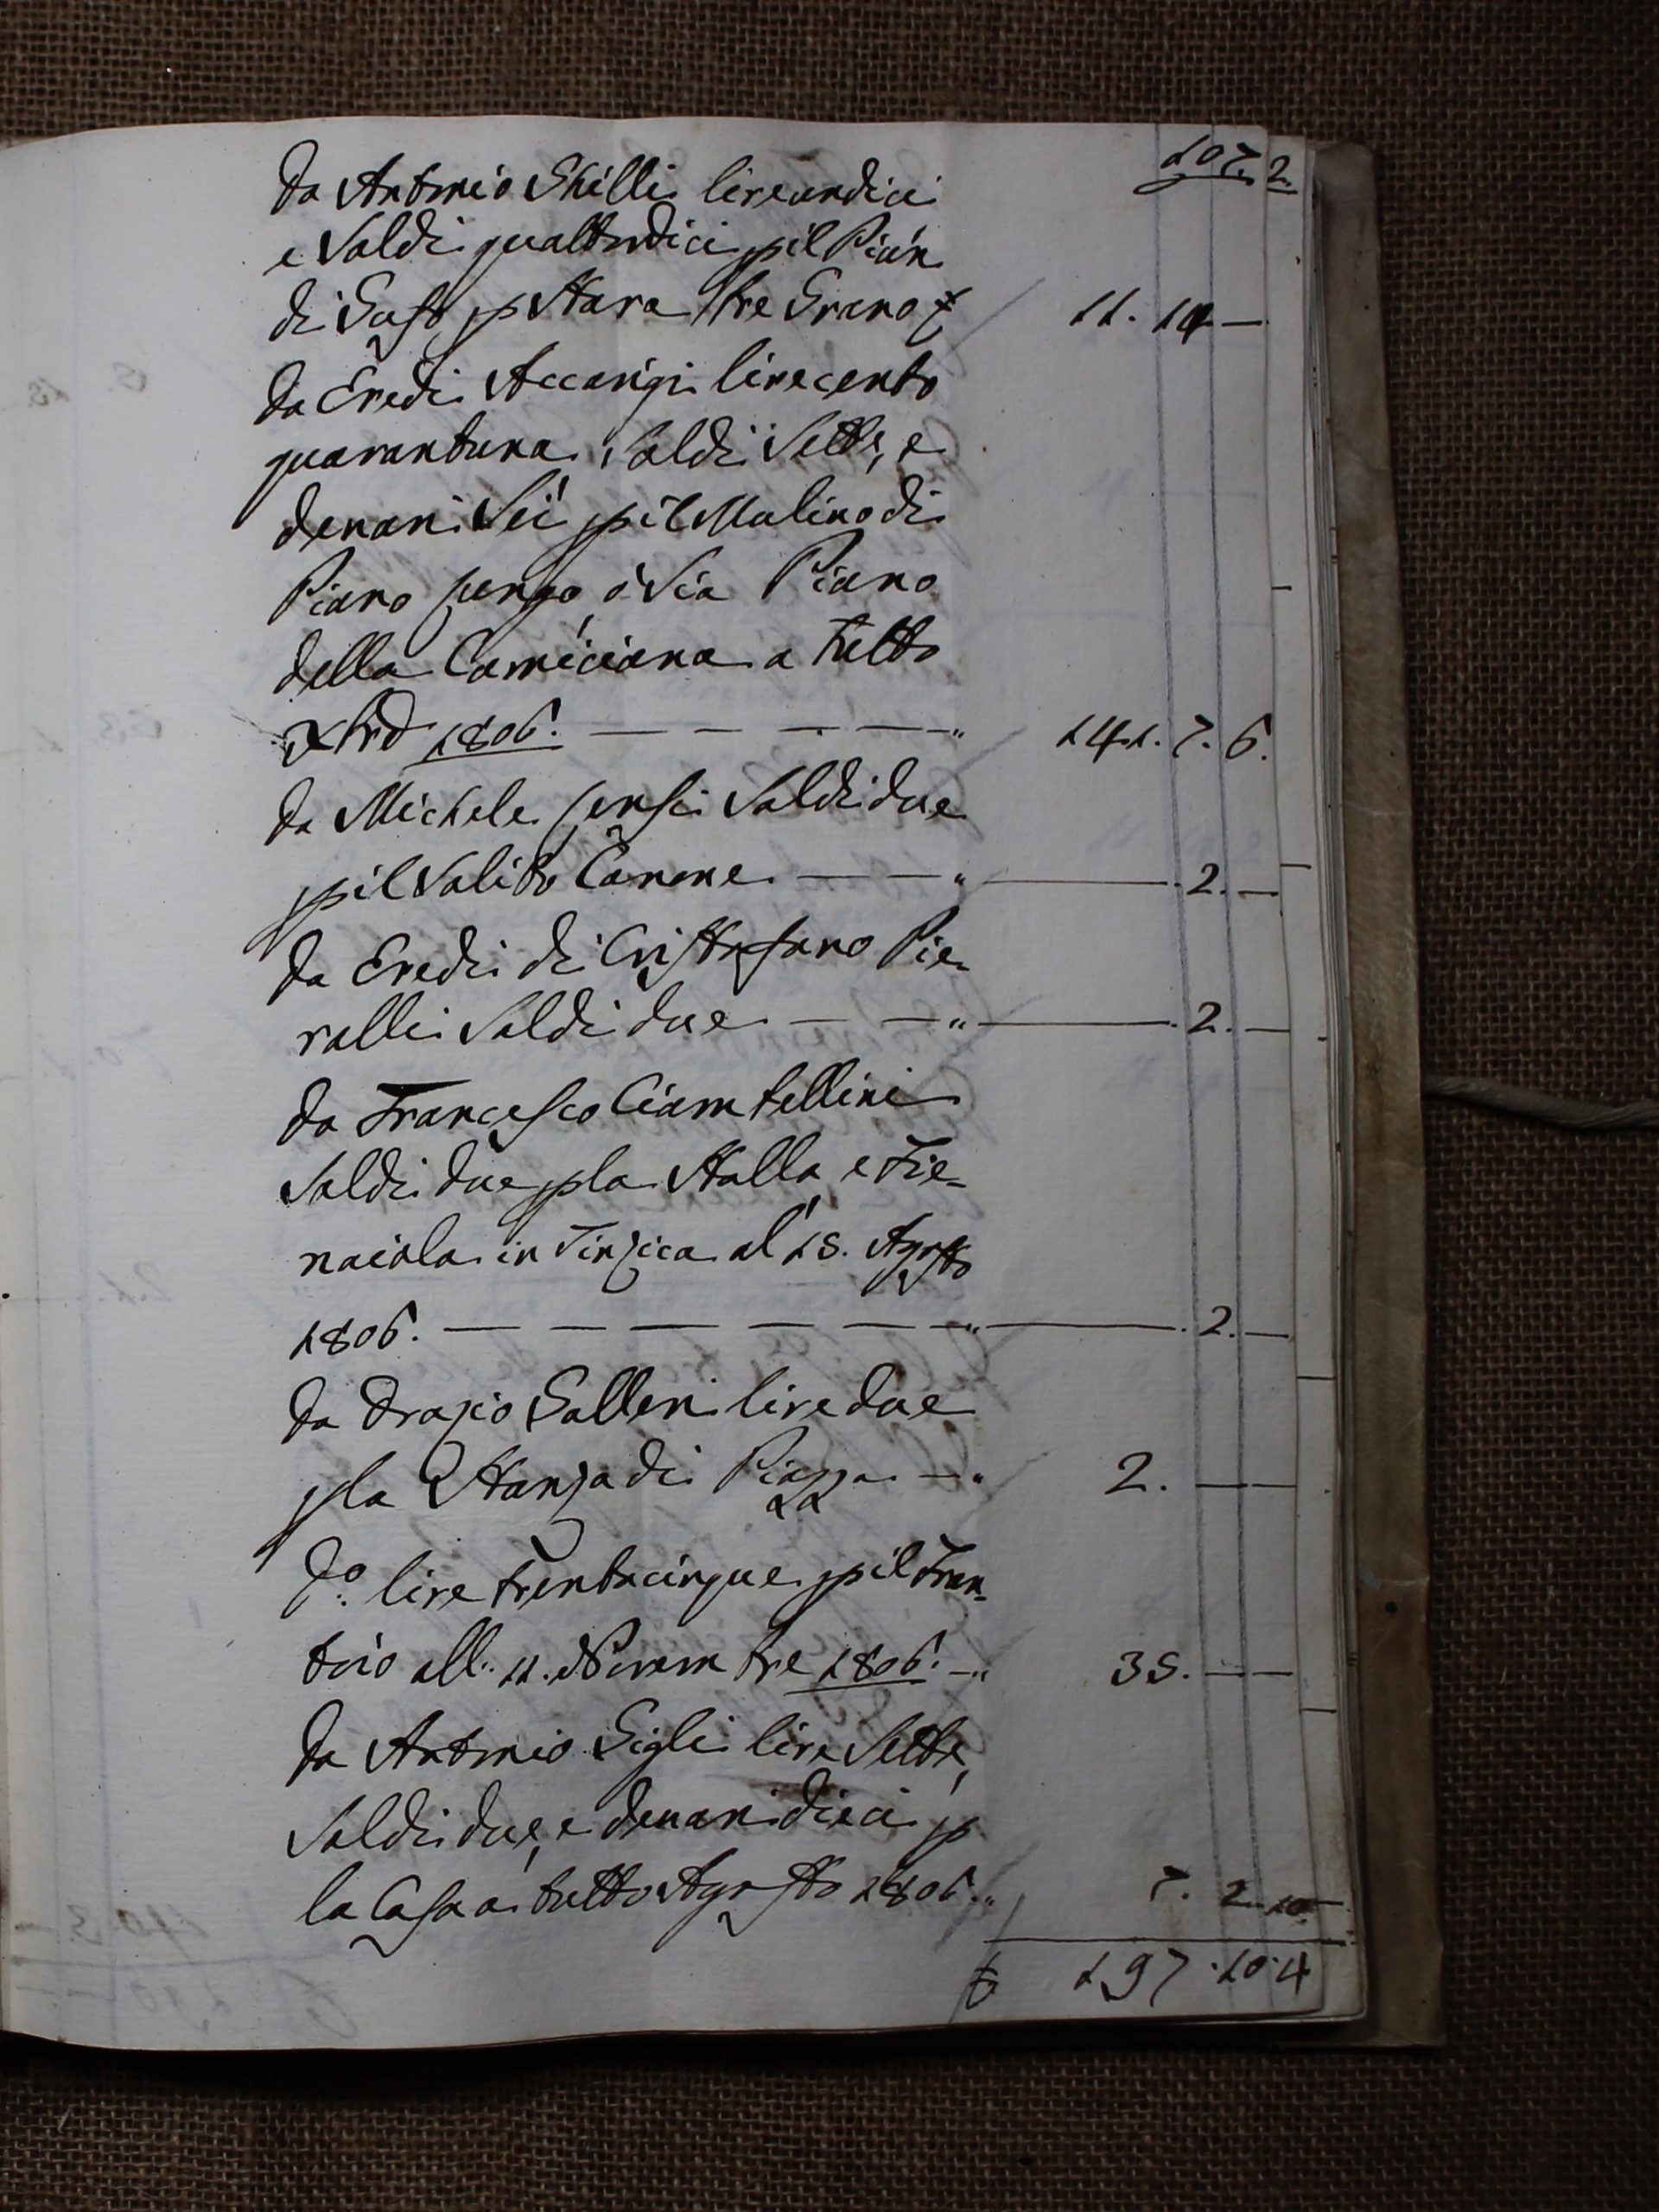 107. 2.
Da Antonio Stilli lire undici
e Soldi quattordici p il Pian
di Gusto p Stara tre Grano £ 11. 14 —
Da Eredi Accarigi lire cento
quarantuna, Soldi Sette, e
denari Sei p il Mulino di
Piano Cengo, ò Sia Piano
della Camiciana a tutto
Xbre 1806. — — — — — " 141. 7. 6.
Da Michele Censi Soldi due
p il Solito Canone — — " — . 2. —
Da Eredi di Cristofano Pie-
ralli Soldi due — — " — . 2. —
Da Francesco Ciambellini
Soldi due p la Stalla, e Fie-
naiola in al 15. Agosto
1806. — — — — — — " — . 2. —
Da Orazio Galleri lire due
p la Stanza di Piazza — " 2. — —
Do. lire trentacinque p il Fran-
toio all. 11. Novembre 1806. — " 35. — —
Da Antonio Gigli lire Sette,
Soldi due, e denari dieci p
la Casa a tutto Agosto 1806. " 7. 2. 10
£ 197. 10. 4